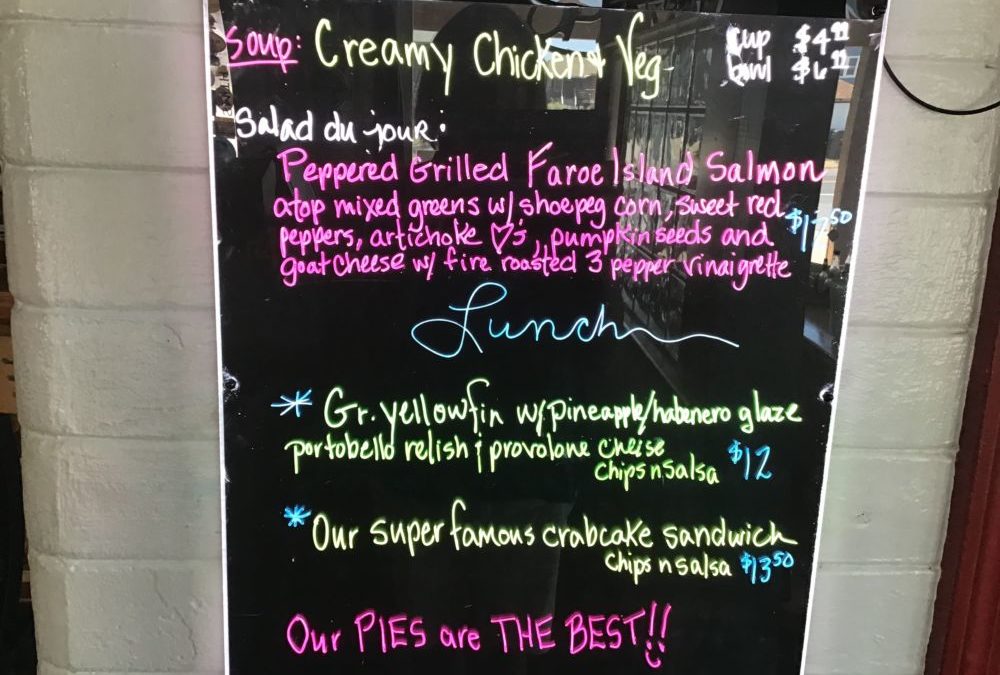 Soup: Creamy Chicken & Veg cup $4
bowl $6
Salad du jour:
Peppered Grilled Faroe Island Salmon
atop mixed greens w/ shoepeg corn, sweet red
peppers, artichoke ♡'s, pumpkin seeds and
goat cheese w/ fire roasted 3 pepper vinaigrette
Lunch
* Gr. yellowfin w/ pineapple/habenero glaze
portobello relish & provolone cheise
chips n salsa $12
* Our super famous crabcake sandwich
chips n salsa $13.50
Our PIES are THE BEST!!